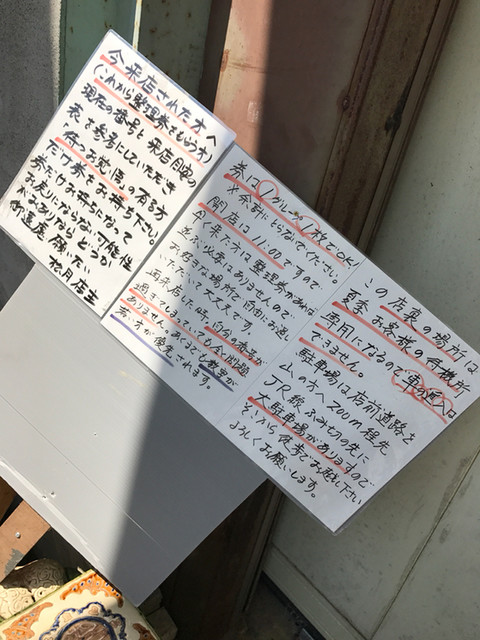 今来店された方へ
(これから整理券をもらう方)
現在の番号と来店目安の
表を参考にしていただき
待つお覚悟の有る方
だけ券をお持ち下さい。
券だけお持ちになって
お戻りにならない可能性
がおありならどうか
御遠慮願いたい
松月店主
券は1グループ1枚でOK!
※会計にもなるのでください。
開店は11:00ですので
今来た方は整理券があれば
並ぶ必要はありませんので、
お好きな場所で自由にお過し
いただいて大丈夫です。
再来店した時、自分の番号が
過ぎてしまっていても全く問題
ありません。あくまでも数字が
若い方が優先されます。
この店裏の場所は
夏季お客様の待機所
専用になるので車の進入は
できません。
駐車場は店前道路を
山の方へ200m程先
JR線ふみ切の先に
大駐車場がありますので
そこから徒歩でお越し下さい
よろしくお願いします。